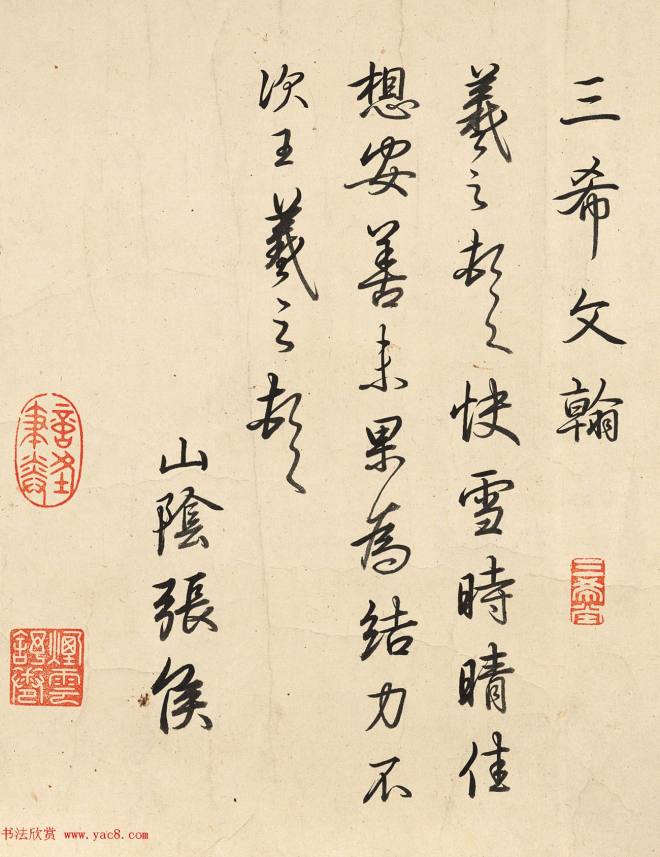 三希文翰
羲之頓首快雪時晴佳
想安善未果為結力不
次王羲之頓首
山陰張侯
三希堂
書法欣赏 www.yac8.com